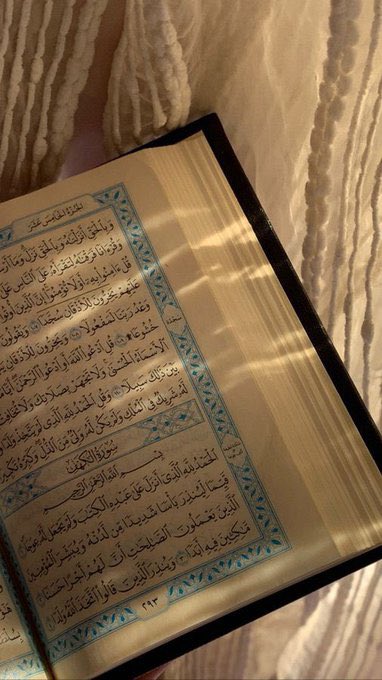 الجزء الخامس عشر
وَبِٱلْحَقِّ أَنزَلْنَٰهُ وَبِٱلْحَقِّ نَزَلَ وَمَآ
وَقُرْءَانًا فَرَقْنَٰهُ لِتَقْرَأَهُۥ عَلَى ٱلنَّاسِ عَلَىٰ
قُلْ ءَامِنُوا۟ بِهِۦٓ أَوْ لَا تُؤْمِنُوٓا۟ إِنَّ ٱلَّذِينَ
عَلَيْهِمْ يَخِرُّونَ لِلْأَذْقَانِ سُجَّدًا ١٠٧ وَيَقُولُونَ
وَعْدُ رَبِّنَا لَمَفْعُولًا ١٠٨ وَيَخِرُّونَ لِلْأَذْقَانِ
خُشُوعًا ۩ ١٠٩ قُلِ ٱدْعُوا۟ ٱللَّهَ أَوِ ٱدْعُوا۟ ٱلرَّحْمَٰنَ أَيًّا مَّا
ٱلْأَسْمَآءُ ٱلْحُسْنَىٰ وَلَا تَجْهَرْ بِصَلَاتِكَ وَلَا تُخَافِتْ
بَيْنَ ذَٰلِكَ سَبِيلًا ١١٠ وَقُلِ ٱلْحَمْدُ لِلَّهِ ٱلَّذِى لَمْ يَتَّخِذْ وَلَدًا
لَّهُۥ شَرِيكٌ فِى ٱلْمُلْكِ وَلَمْ يَكُن لَّهُۥ وَلِىٌّ مِّنَ ٱلذُّلِّ وَكَبِّرْهُ تَكْبِيرًۢا
سُورَةُ الكَهْفِ
بِسْمِ ٱللَّهِ ٱلرَّحْمَٰنِ ٱلرَّحِيمِ
ٱلْحَمْدُ لِلَّهِ ٱلَّذِىٓ أَنزَلَ عَلَىٰ عَبْدِهِ ٱلْكِتَٰبَ وَلَمْ يَجْعَل لَّهُۥ عِوَجَا ١
قَيِّمًا لِّيُنذِرَ بَأْسًا شَدِيدًا مِّن لَّدُنْهُ وَيُبَشِّرَ ٱلْمُؤْمِنِينَ
ٱلَّذِينَ يَعْمَلُونَ ٱلصَّٰلِحَٰتِ أَنَّ لَهُمْ أَجْرًا حَسَنًا ٢
مَّٰكِثِينَ فِيهِ أَبَدًا ٣ وَيُنذِرَ ٱلَّذِينَ قَالُوا۟ ٱتَّخَذَ ٱللَّهُ وَلَدًا ٤
٢٩٣